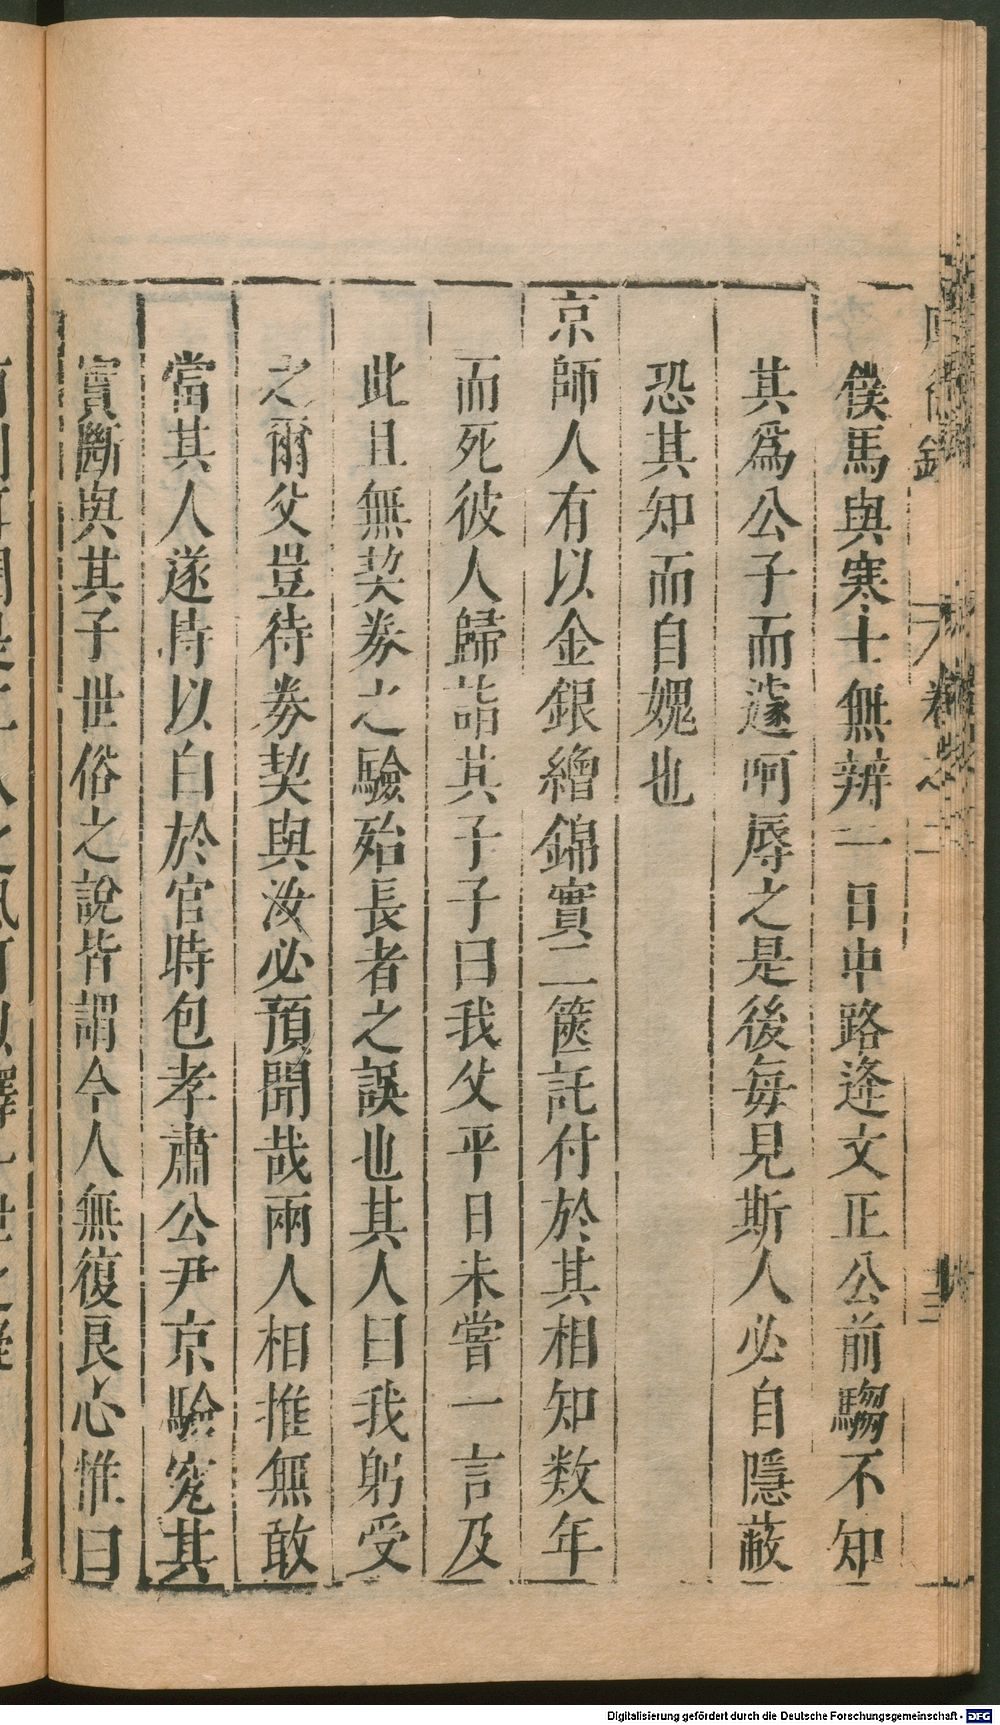 僕馬與寒士無辨一日中路逢文正公前騶不知
其爲公子而遽呵辱之是後每見斯人必自隱蔽
恐其知而自媿也
京師人有以金銀繒錦實二篋託付於其相知数年
而死彼人歸詣其子子曰我父平日未嘗一言及
此且無契券之驗殆長者之誤也其人曰我躬受
之爾父豈待券契與汝必預聞哉兩人相推無敢
當其人遂持以白於官時包孝肅公尹京驗究其
實斷與其子世俗之說皆謂今人無復良心惟曰
卷之二
Digitalisierung gefördert durch die Deutsche Forschungsgemeinschaft - DFG